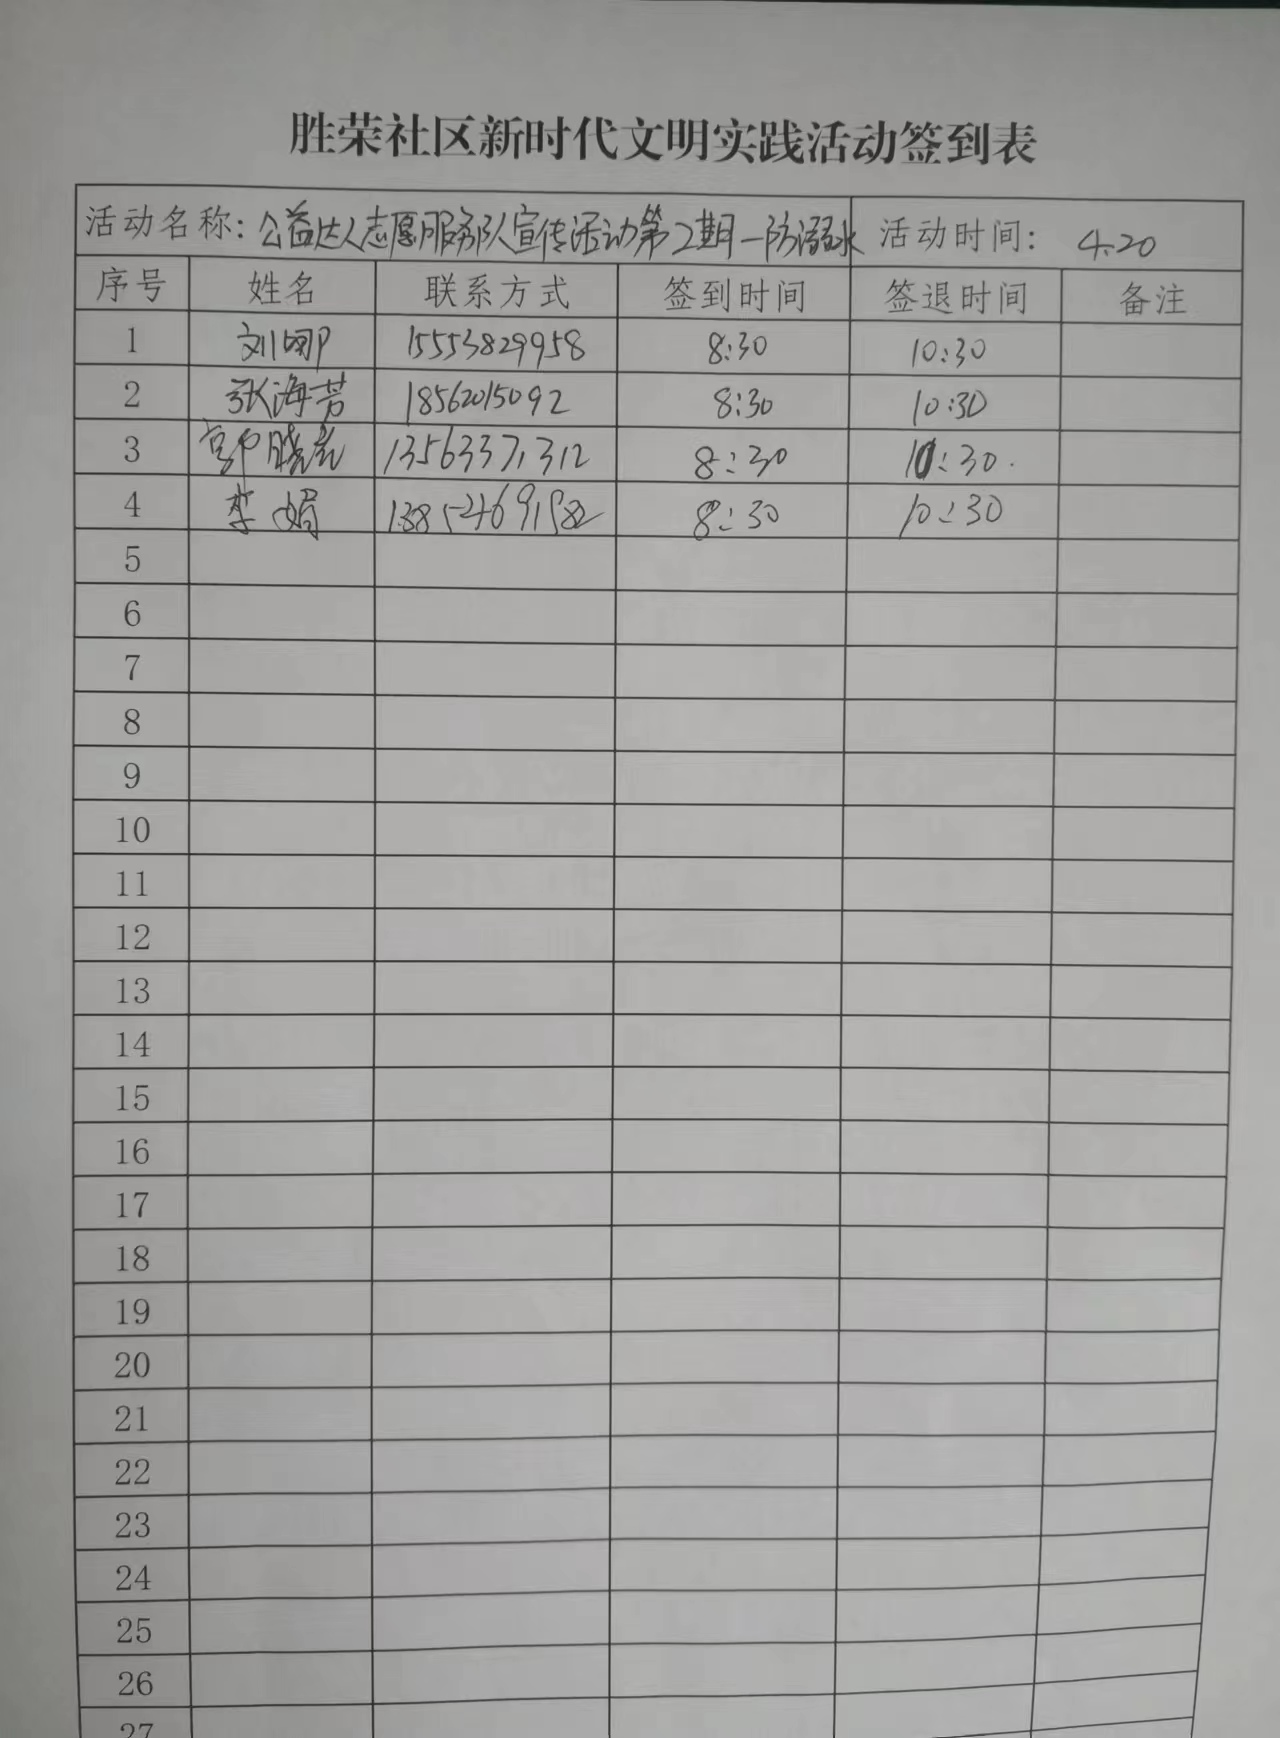 胜荣社区新时代文明实践活动签到表
活动名称：公益达人志愿服务队宣传活动第2期—防溺水 活动时间：4.20
序号 姓名 联系方式 签到时间 签退时间 备注
1 刘娜 15553829958 8:30 10:30
2 张海芳 18562015092 8:30 10:30
3 郭晓 13563371312 8:30 10:30
4 李媚 8:30 10:30
5
6
7
8
9
10
11
12
13
14
15
16
17
18
19
20
21
22
23
24
25
26
27